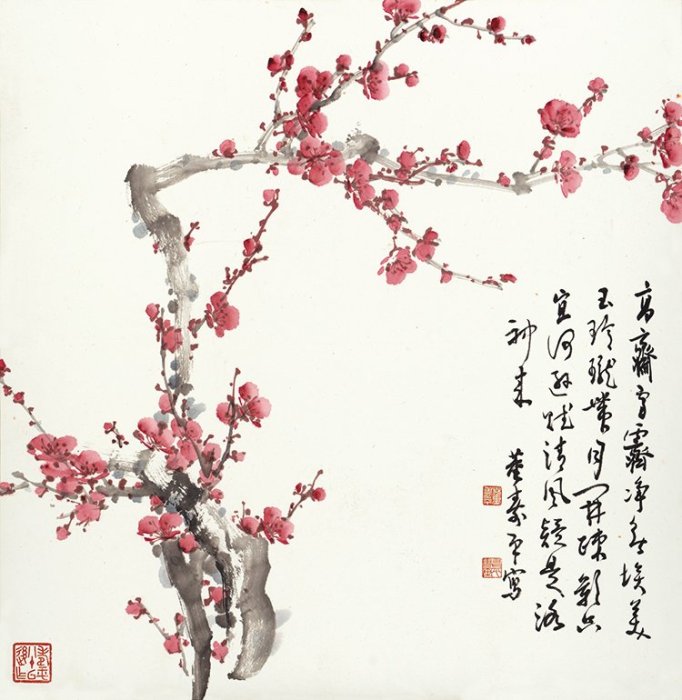 高齋雪霽净無埃美
玉玲瓏帶月開疎影只
宜何遜賦清風疑是洛
神來
董壽平寫